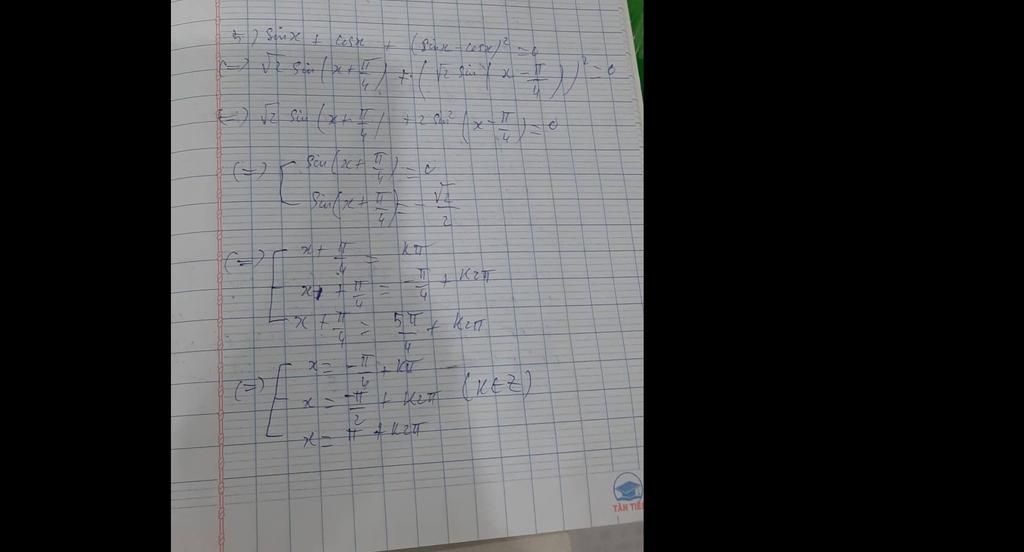 5) sinx + cosx + (sinx - cosx)² = 0
(=) √2 sin(x + π/4) + (√2 sin(x - π/4))² = 0
(=) √2 sin(x + π/4) + 2 sin²(x - π/4) = 0
(=) [ sin(x + π/4) = 0
sin(x + π/4) = -√2/2
(=) [ x + π/4 = kπ
x + π/4 = -π/4 + k2π
x + π/4 = 5π/4 + k2π
(=) [ x = -π/4 + kπ
x = -π/2 + k2π (k ∈ Z)
x = π + k2π
TÂN TIẾN